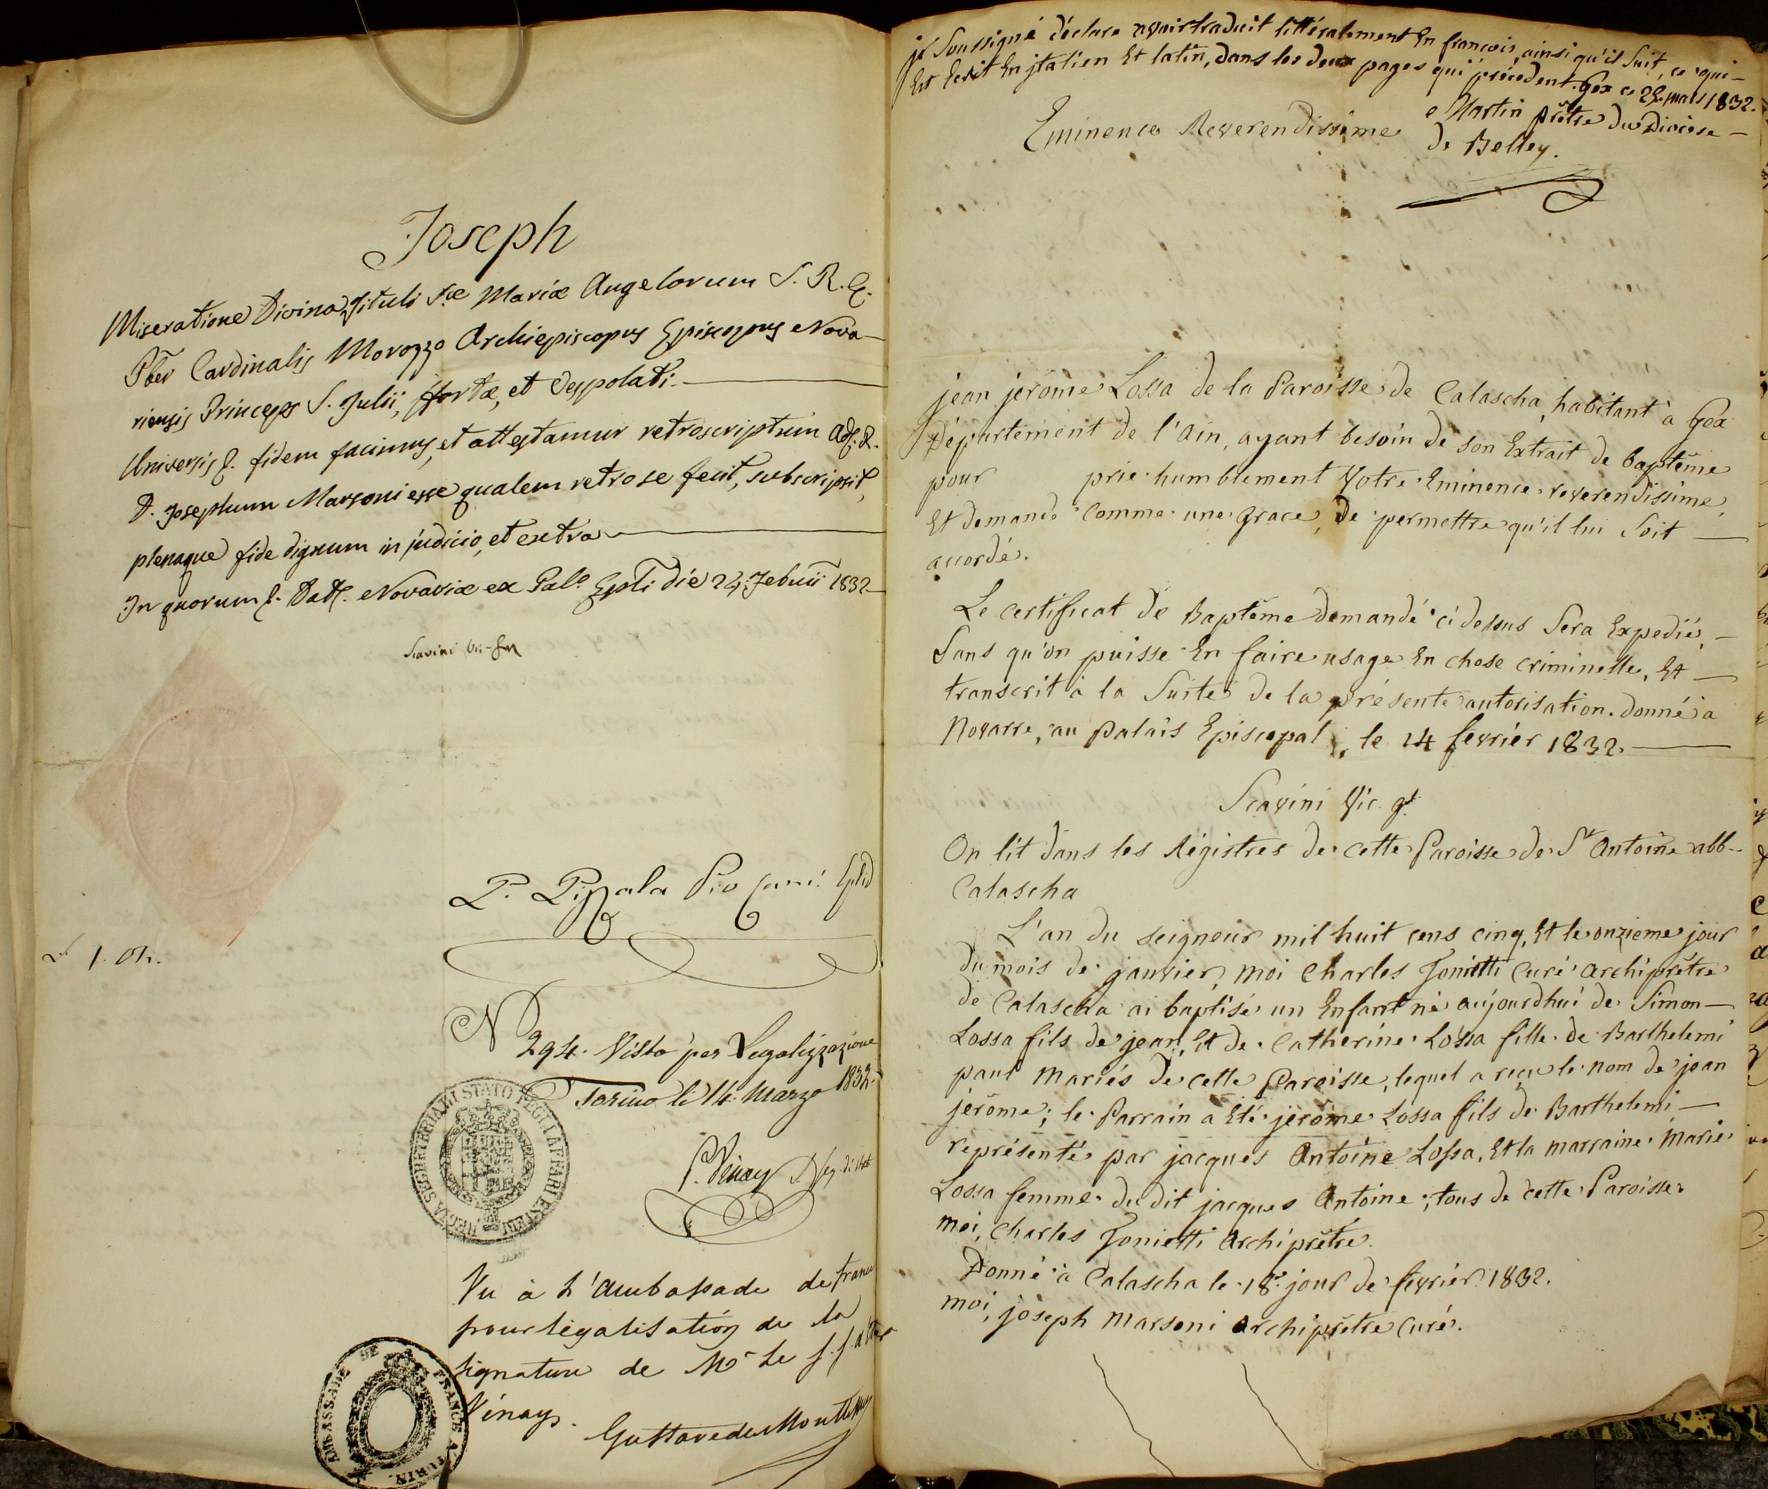 Joseph
Miseratione Divina Tituli S.æ Mariæ Angelorum S. R. E.
Pber Cardinalis Morozzo Archiepiscopus Episcopus Nova-
riensis Princeps S. Julii, Hortæ, et Vespolati.
Universis &. fidem facimus, et attestamur retroscriptum Adm. R.
D. Josephum Marsoni esse qualem retro se fecit, subscripsit,
plenaque fide dignum in judicio, et extra
In quorum &. Dat. Novariæ ex Pal.o Epli die 24. Februii 1832
Scavini Vic. Gen
P. Pizzala Pro Canc. Eplis
L 1. 01.
N 294. Visto per Legalizzazione
Torino li 14. Marzo 1832.
Vinay
REGIA SEGRETERIA DI STATO PER GLI AFFARI ESTERI
Vu à L'Ambassade de france
pour légalisation de la
signature de Mr Le
Vinay.
Gustave de Montt
AMBASSADE DE FRANCE A TURIN.
je Soussigné déclare avoir traduit littéralement En françois, ainsi qu'il Suit, ce qui
Est Ecrit En jtalien Et latin, dans les deux pages qui précédent. Gex ce 28 mars 1832.
Martin prêtre du Diocèse
de Belley.
Eminence Reverendissime
jean jerôme Lossa de la Paroisse de Calascha, habitant à Gex
Département de l'Ain, ayant besoin de son Extrait de baptême
pour prie humblement Votre Eminence reverendissime,
Et demande comme une grace, de permettre qu'il lui Soit
accordé.
Le certificat de Baptême demandé ci dessus Sera Expedié,
Sans qu'on puisse En faire usage En chose criminelle, Et
transcrit à la Suite de la présente autorisation. donné à
Novarre, au palais Episcopal, le 14 fevrier 1832.
Scavini Vic. gl.
On lit dans les Régistres de cette Paroisse de St Antoine abb.
Calascha
L'an du seigneur mil huit cens cinq, Et le onzieme jour
du mois de janvier, moi Charles Tonietti Curé archiprêtre
de Calascha ai baptisé un Enfant né aujourdhui de Simon
Lossa fils de jean, Et de Catherine Lossa fille de Barthelemi
paul mariés de cette Paroisse, lequel a reçu le nom de jean
jerôme; le Parrain a Eté jerôme Lossa fils de Barthelemi
représenté par jacques Antoine Lossa, Et la marraine Marie
Lossa femme du dit jacques Antoine; tous de cette Paroisse.
moi, Charles Tonietti Archiprêtre.
Donné à Calascha le 18e jour de fevrier 1832.
moi, joseph Marsoni archiprêtre Curé.